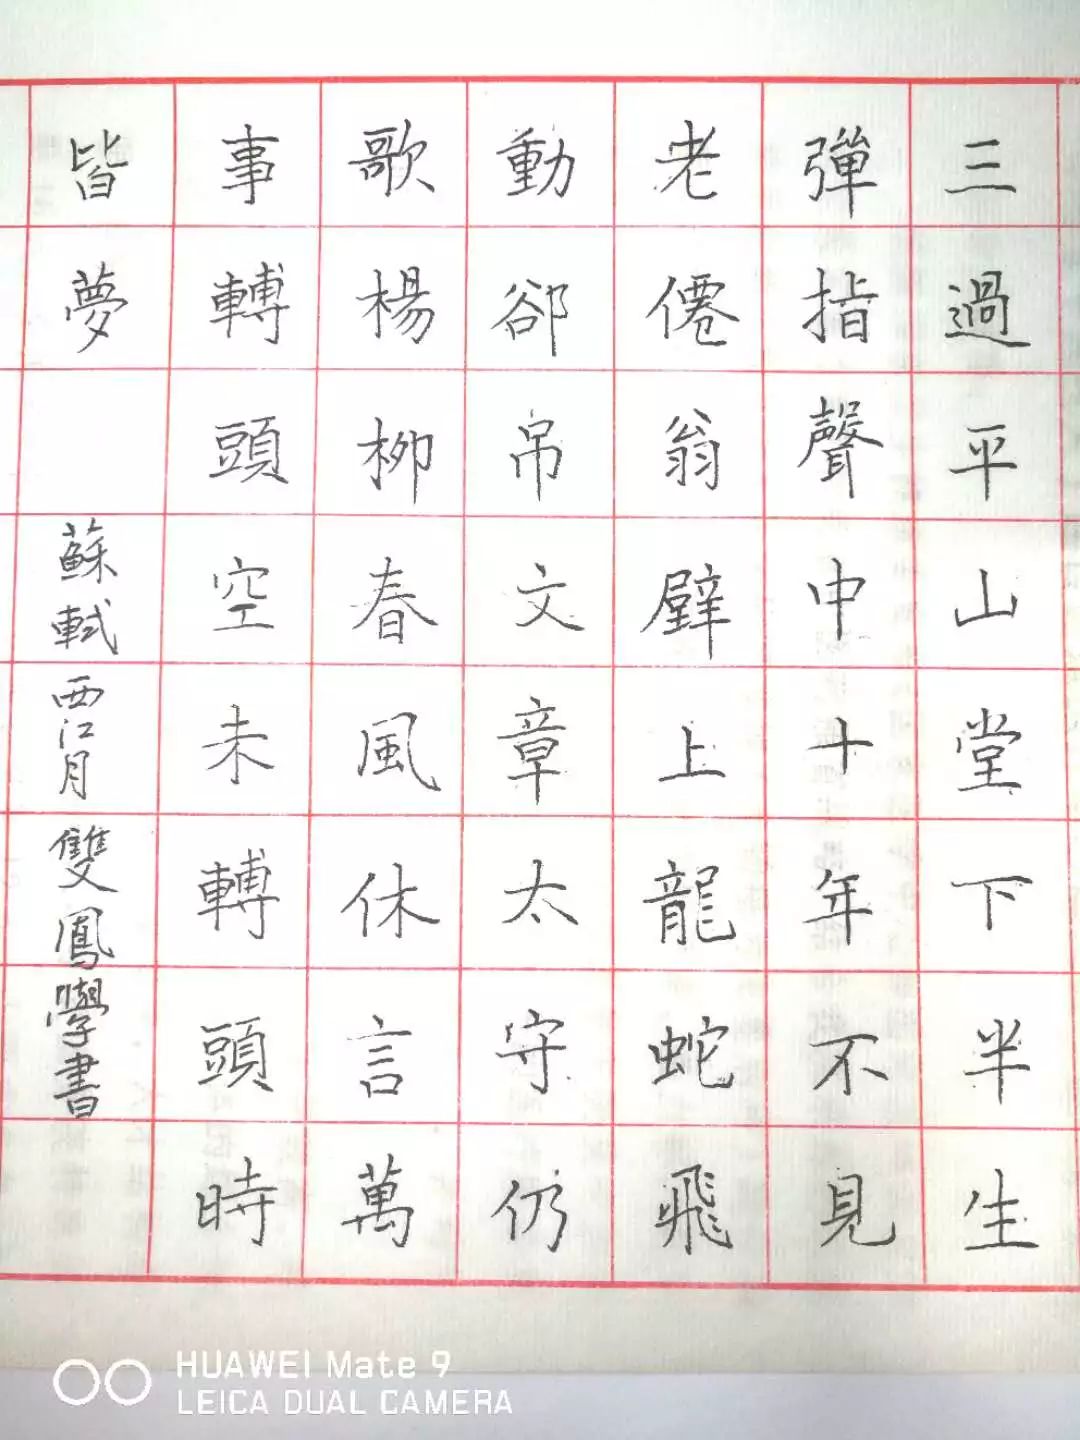 三過平山堂下半生
彈指聲中十年不見
老僊翁壁上龍蛇飛
動卻吊文章太守仍
歌楊柳春風休言萬
事轉頭空未轉頭時
皆夢
蘇軾西江月雙鳳學書
HUAWEI Mate 9
LEICA DUAL CAMERA